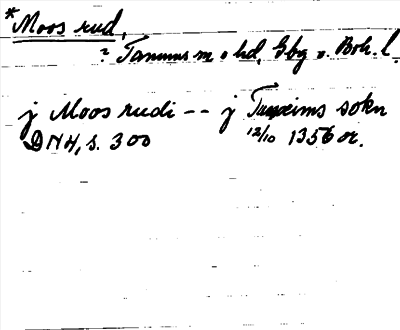 *Moos rud,
? Tanums sn o hd, Gbg o. Boh. l.
j Moos rudi -- j Tunæims sokn
DN 4, s. 300 12/10 1356 or.